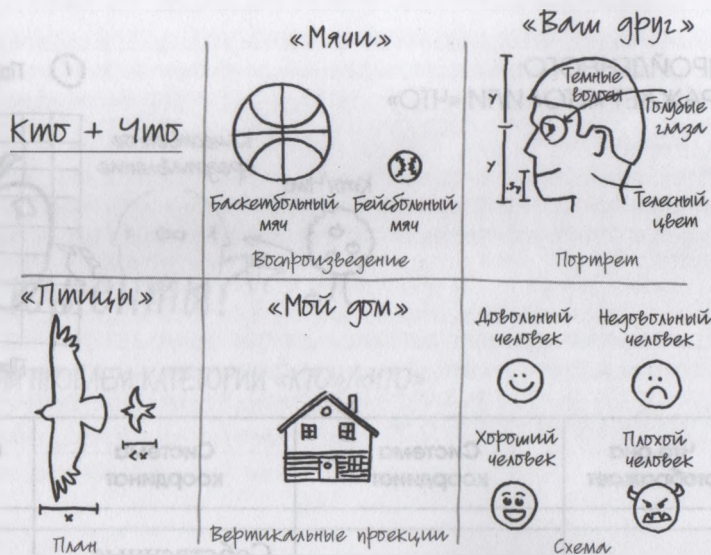 Кто + Что
«Мячи»
Баскетбольный
мяч
Бейсбольный
мяч
Воспроизведение
«Ваш друг»
Темные
волосы
Голубые
глаза
y
Телесный
цвет
Портрет
«Птицы»
x
План
«Мой дом»
Вертикальные проекции
Довольный
человек
Недовольный
человек
Хороший
человек
Плохой
человек
Схема